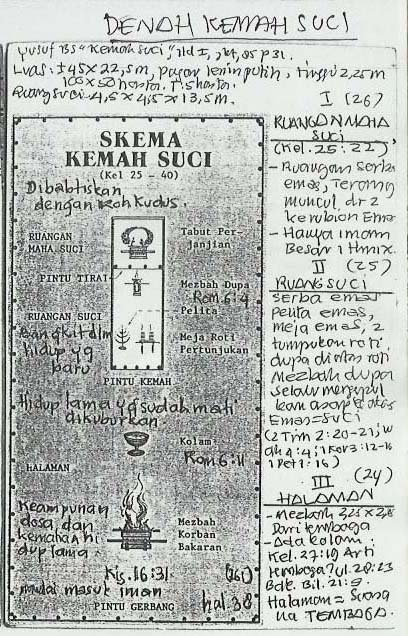 DENAH KEMAH SUCI
Yusuf BS "Kemah Suci" Jld I,
Luas: ±45 x 22,5m, pagar lenin putih, tinggi 2,25m
100 x 50 hasta. T. 5 hasta.
Ruang Suci 4,5 x 4,5 x 13,5m.
SKEMA
KEMAH SUCI
(Kel 25 - 40)
Dibabtiskan
dengan Roh Kudus.
RUANGAN
MAHA SUCI
Tabut Per-
janjian
PINTU TIRAI
Mezbah Dupa
Rom 6:4
Pelita
RUANGAN SUCI
Bangkit dlm
hidup yg
baru
Meja Roti
Pertunjukan
PINTU KEMAH
Hidup lama yg sudah mati
dikuburkan
Kolam
Rom 6:11
HALAMAN
Keampunan
dosa, dan
kematian hi
dup lama.
Mezbah
Korban
Bakaran
Kis. 16:31
mulai masuk iman
PINTU GERBANG
hal. 38
I (26)
RUANGAN MAHA
SUCI
(Kel. 25:22)
- Ruangan serba
emas, Terang
muncul dr 2
kerubion Emas
- Hanya imam
Besar 1
II (25)
RUANG SUCI
serba emas
pelita emas,
meja emas, 2
tumpukan roti,
dupa diatas roti
Mezbah dupa
selalu mengepul
kan asap
Emas = suci
(2 Tim 2:20-21; W
4:4; 1 Kor 3:12-16
1 Pet 1:16)
III (24)
HALAMAN
- Mezbah 2,25 x 2,8
Dari tembaga
- Ada kolam.
Kel. 27:19 Arti
tembaga? Ul. 28:23
Bdk. Bil. 21:9.
Halaman = Suasa
na TEMBAGA.